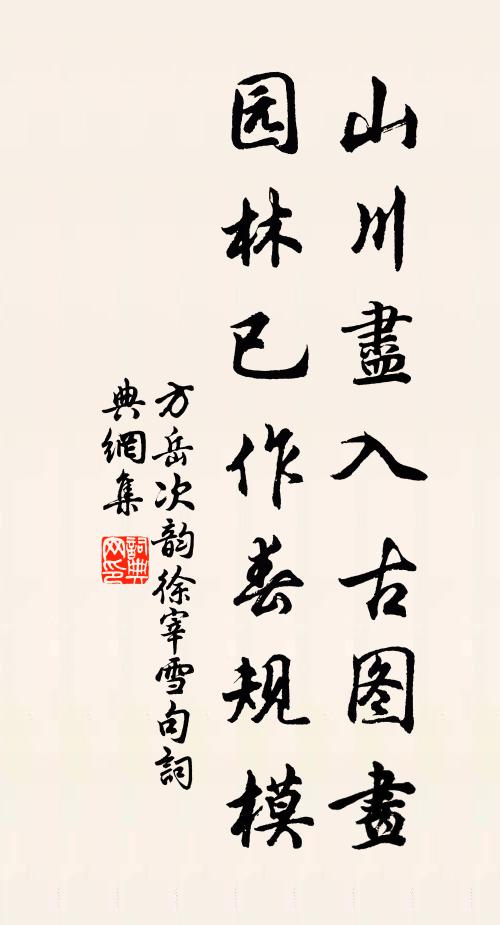 山川盡入古图畫
园林已作春规模
方岳次韵徐宰雪句詞
典網集
詞典
网印